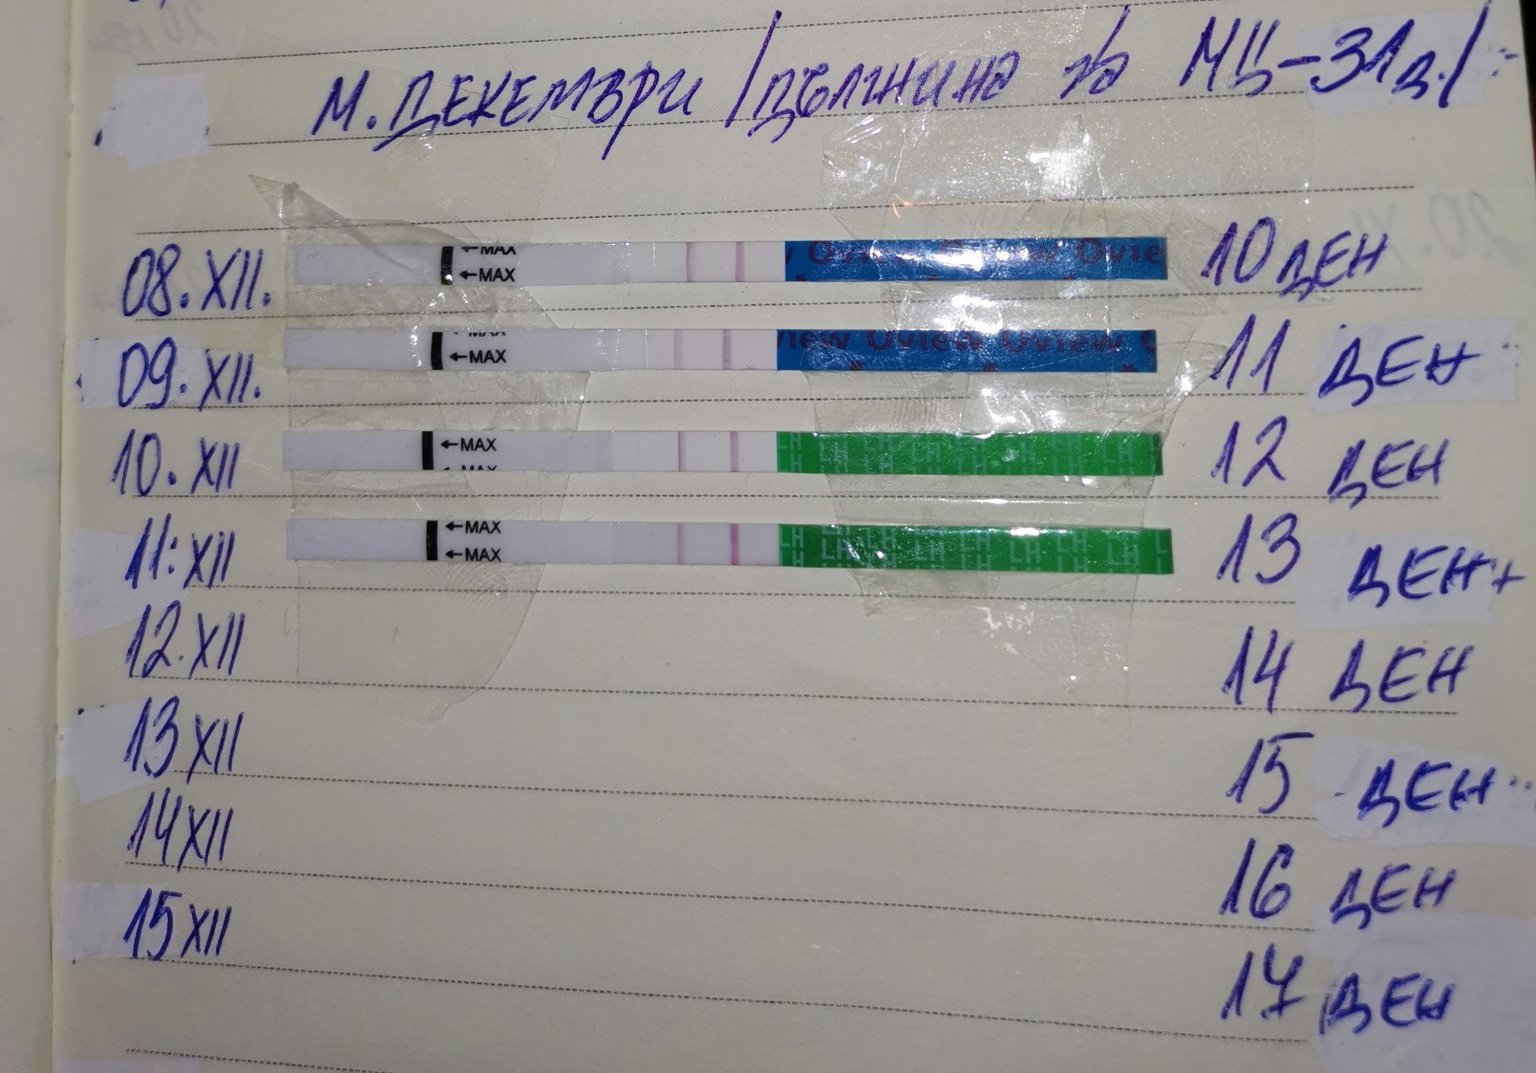 М. ДЕКЕМВРИ /дължина на МЦ-31д./
08.XII. ←MAX ←MAX Oview Oview 10 ДЕН
09.XII. ←MAX Oview Oview 11 ДЕН
10.XII ←MAX LH LH LH LH LH LH LH 12 ДЕН
11.XII ←MAX ←MAX LH LH LH LH LH LH LH 13 ДЕН
12.XII 14 ДЕН
13 XII 15 ДЕН
14 XII 16 ДЕН
15 XII 17 ДЕН